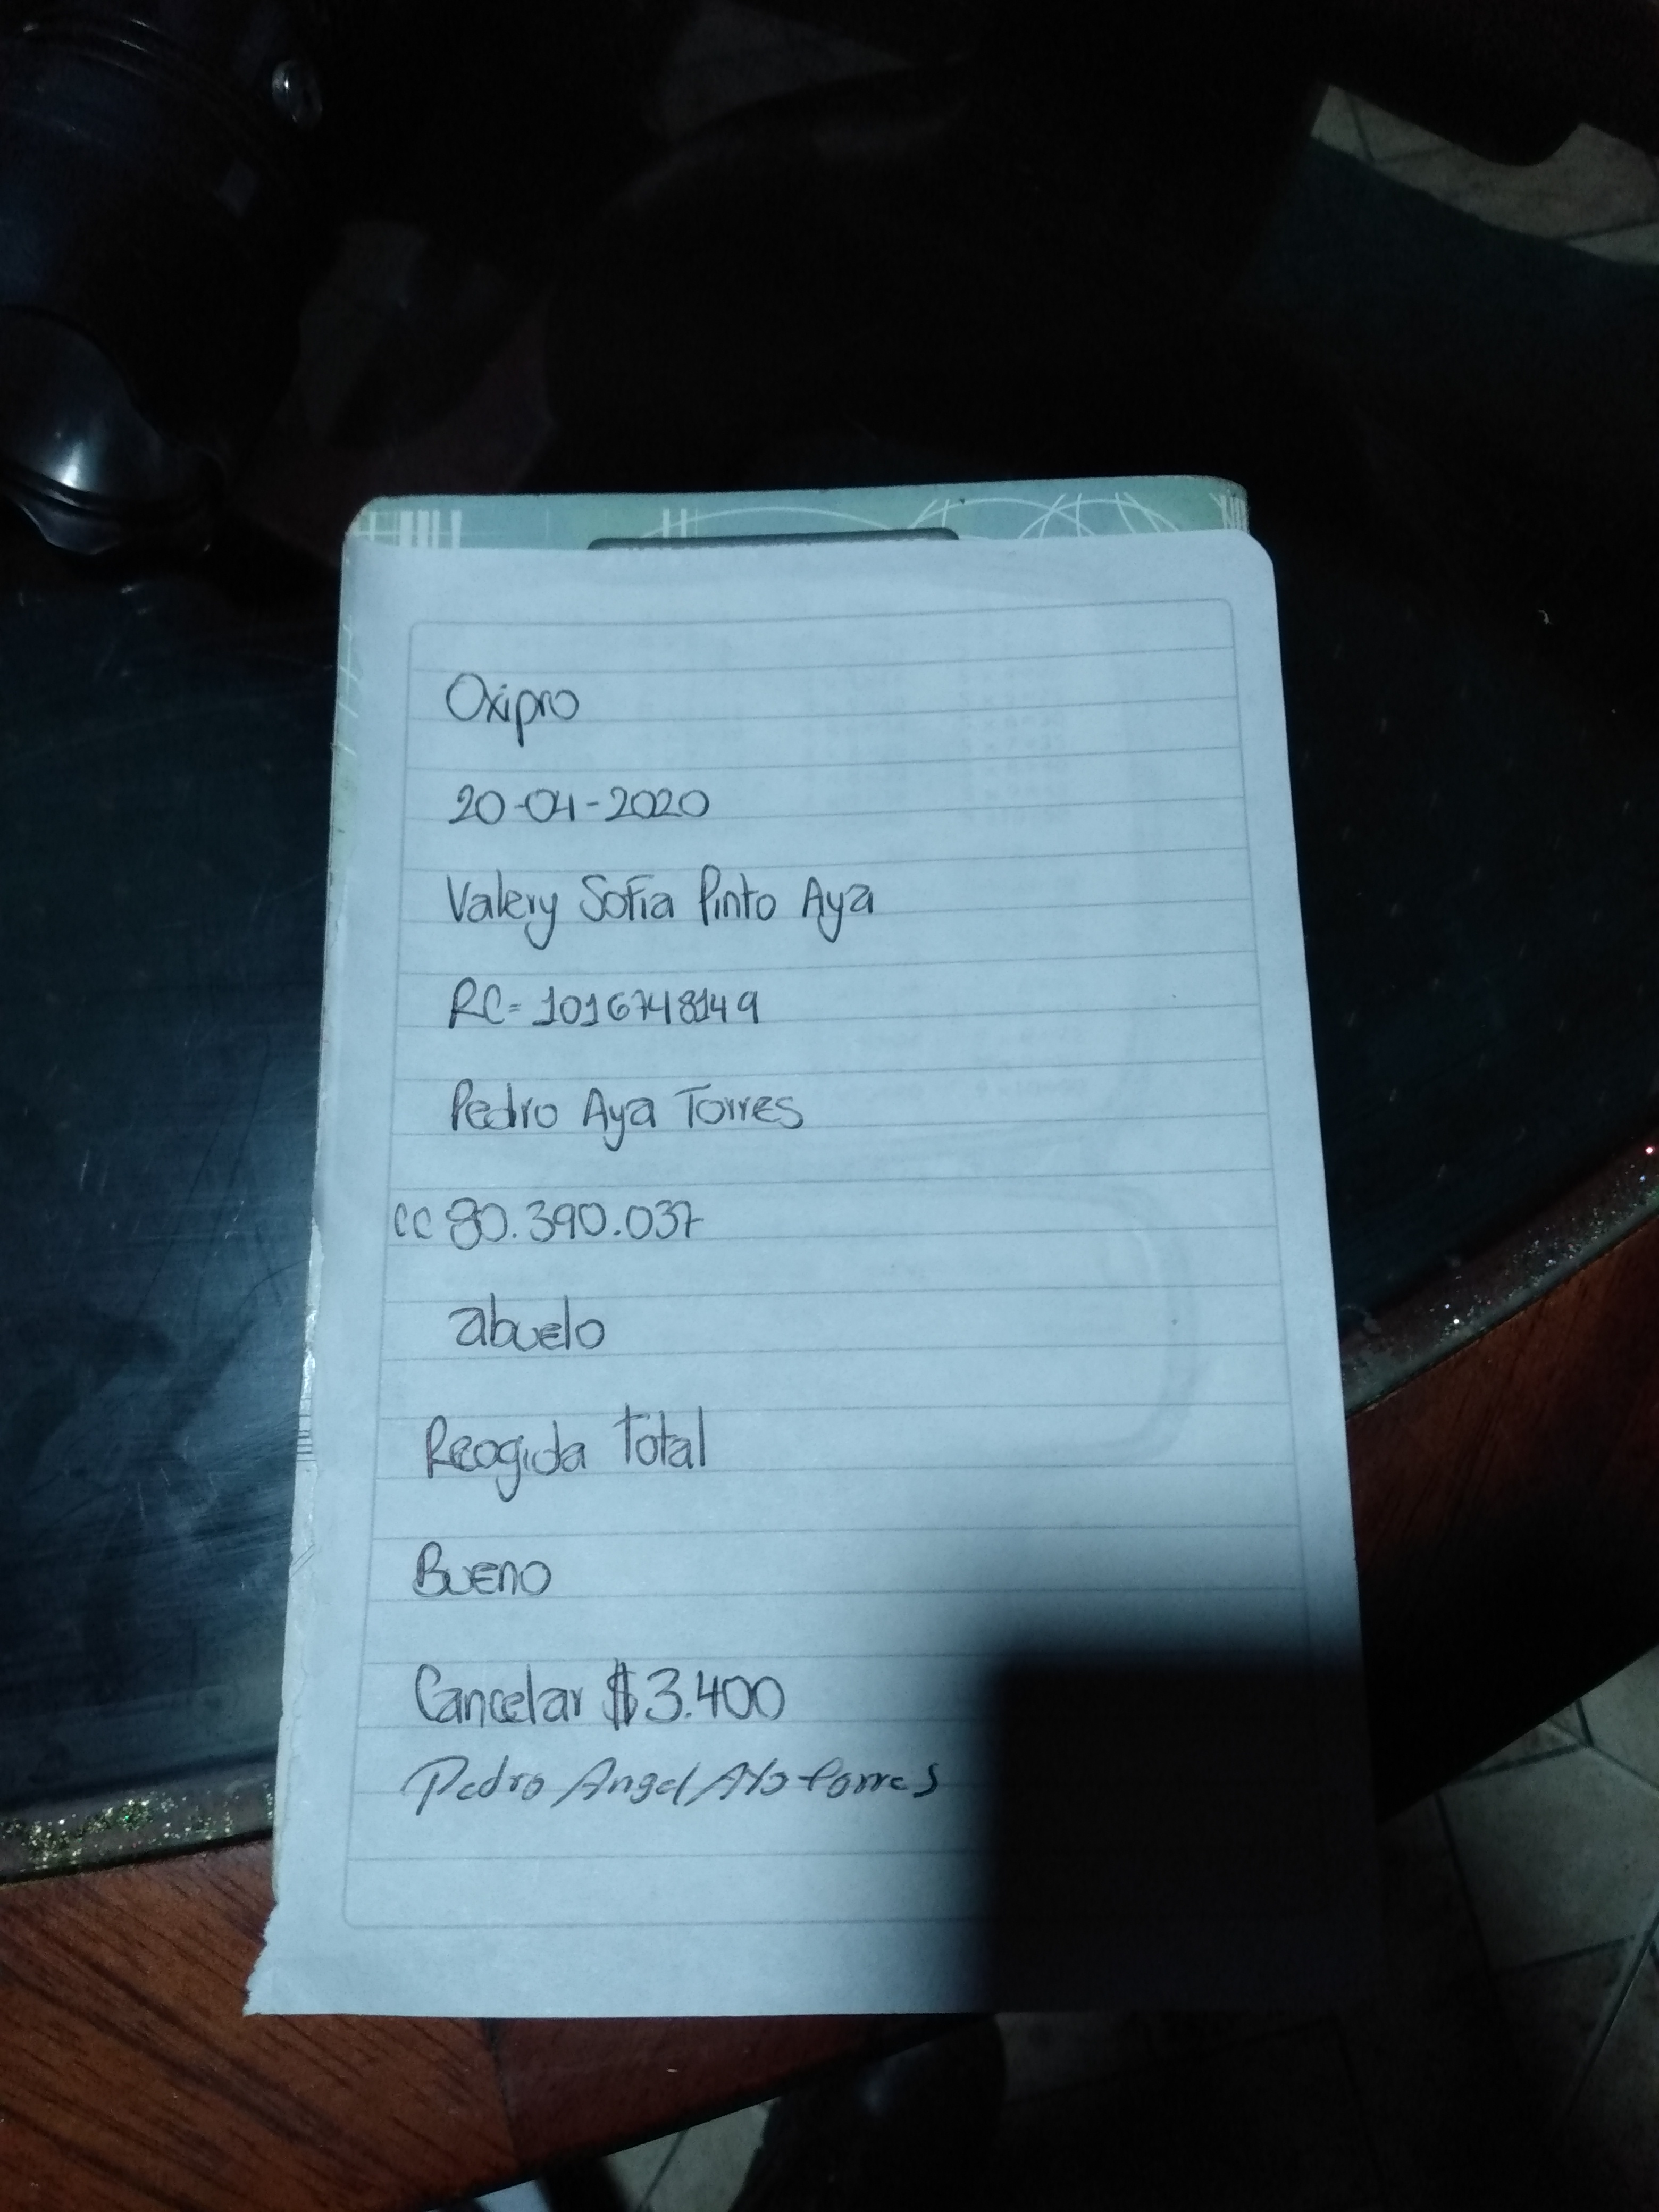 Oxipro
20-04-2020
Valery Sofia Pinto Aya
RC= 1016748149
Pedro Aya Torres
CC 80.390.037
abuelo
Recogida Total
Bueno
Cancelar $3.400
Pedro Angel Aya torres